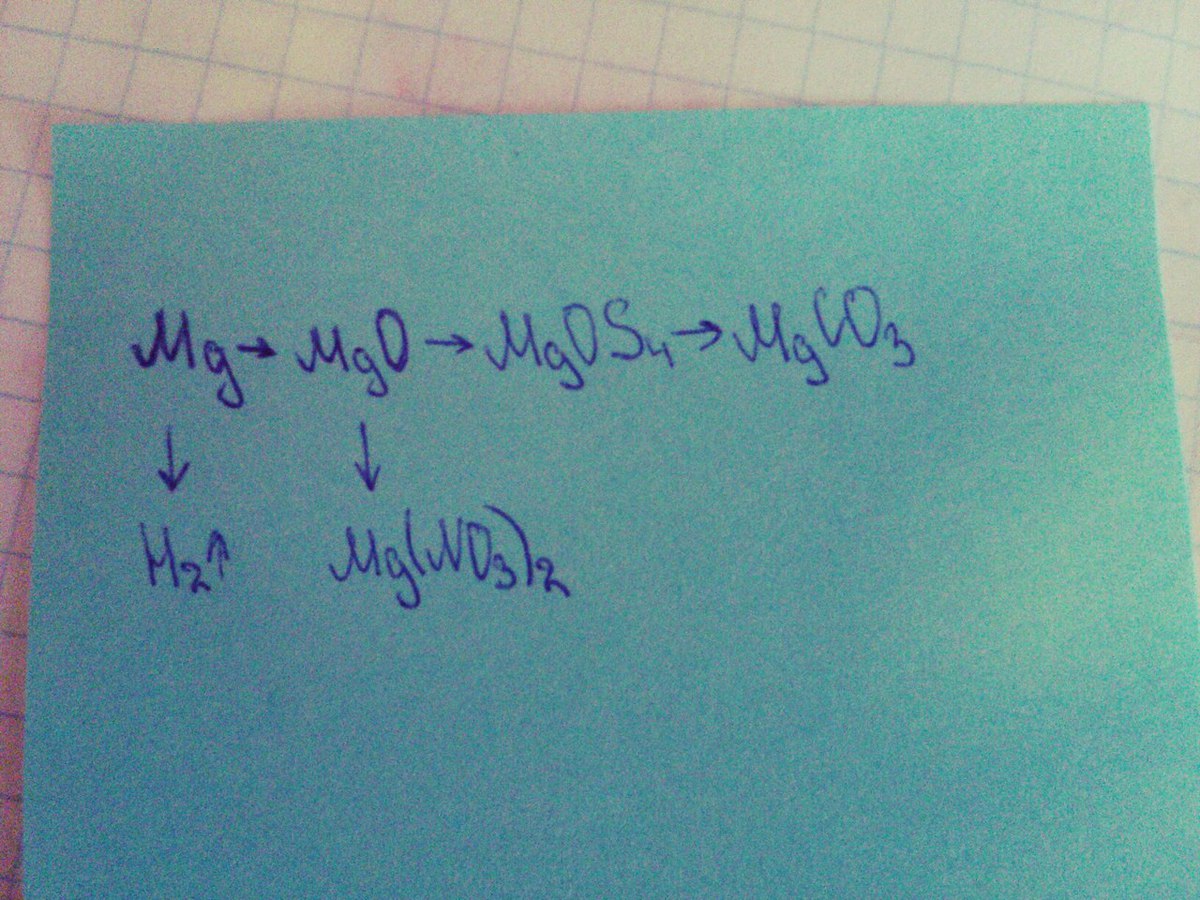 Mg → MgO → MgOS₄ → MgCO₃
↓ ↓
H₂↑ Mg(NO₃)₂